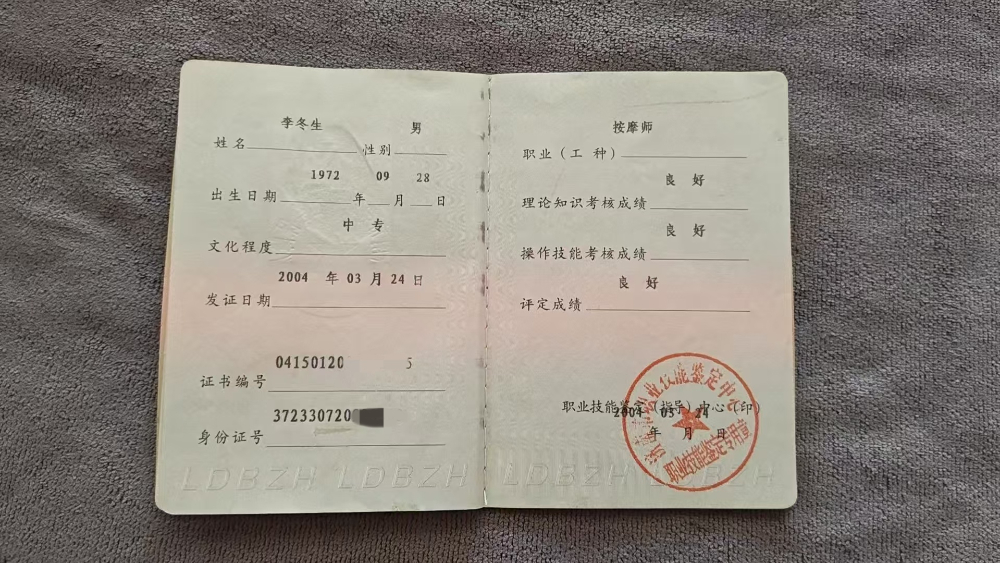 李冬生 男
姓名 性别
1972 09 28
出生日期 年 月 日
中专
文化程度
2004 年 03 月 24 日
发证日期
04150120 5
证书编号
372330720
身份证号
LDBZH LDBZH
按摩师
职业（工种）
良好
理论知识考核成绩
良好
操作技能考核成绩
良好
评定成绩
职业技能鉴定（指导）中心（印）
2004 03 24
年 月 日
职业技能鉴定中心
职业技能鉴定专用章
LDBZH LDBZH